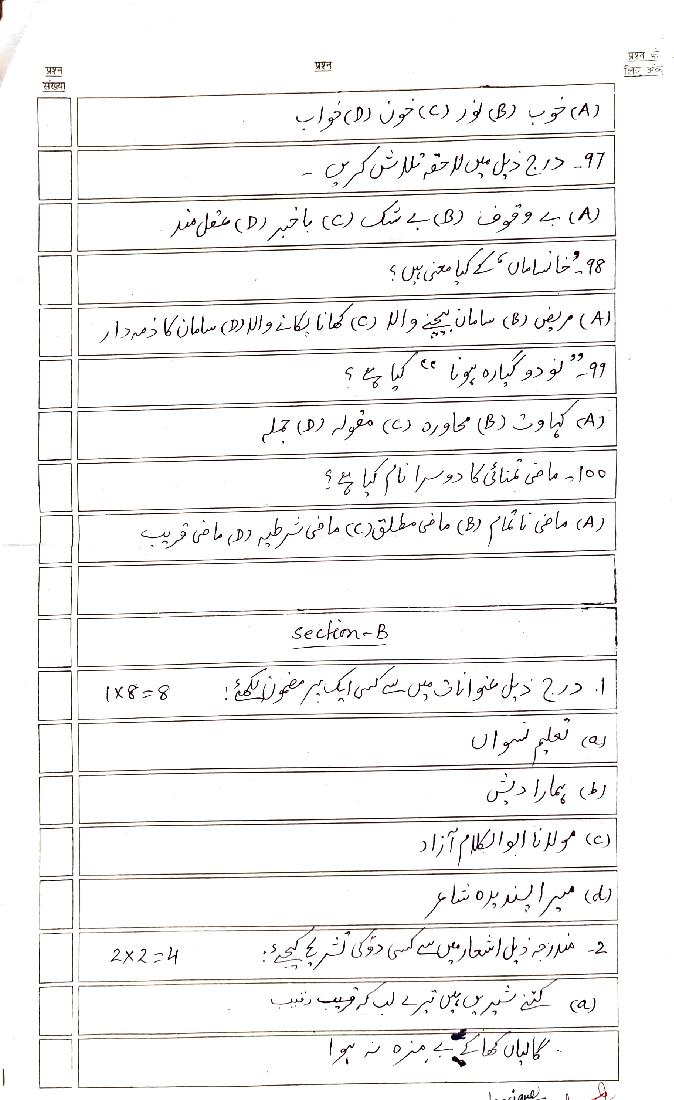 प्रश्न संख्या
प्रश्न
प्रश्न के लिए अंक
(A) خوب (B) نور (C) خون (D) خواب
97۔ درج ذیل میں لاحقہ تلاش کریں ۔
(A) بے وقوف (B) بے شک (C) باخبر (D) عقل مند
98۔ "خانساماں" کے کیا معنی ہیں؟
(A) مریض (B) سامان بیچنے والا (C) کھانا پکانے والا (D) سامان کا ذمہ دار
99۔ "نو دو گیارہ ہونا" کیا ہے؟
(A) کہاوت (B) محاورہ (C) مقولہ (D) جملہ
100۔ ماضی تمنائی کا دوسرا نام کیا ہے؟
(A) ماضی ناتمام (B) ماضی مطلق (C) ماضی شرطیہ (D) ماضی قریب
Section-B
1. درج ذیل عنوانات میں سے کسی ایک پر مضمون لکھئے: 1×8=8
(a) تعلیم نسواں
(b) ہمارا دیش
(c) مولانا ابوالکلام آزاد
(d) میرا پسندیدہ شاعر
2۔ مندرجہ ذیل اشعار میں سے کسی دو کی تشریح کیجئے: 2×2=4
(a) کتنے شیریں ہیں تیرے لب کہ رقیب
گالیاں کھا کے بے مزہ نہ ہوا